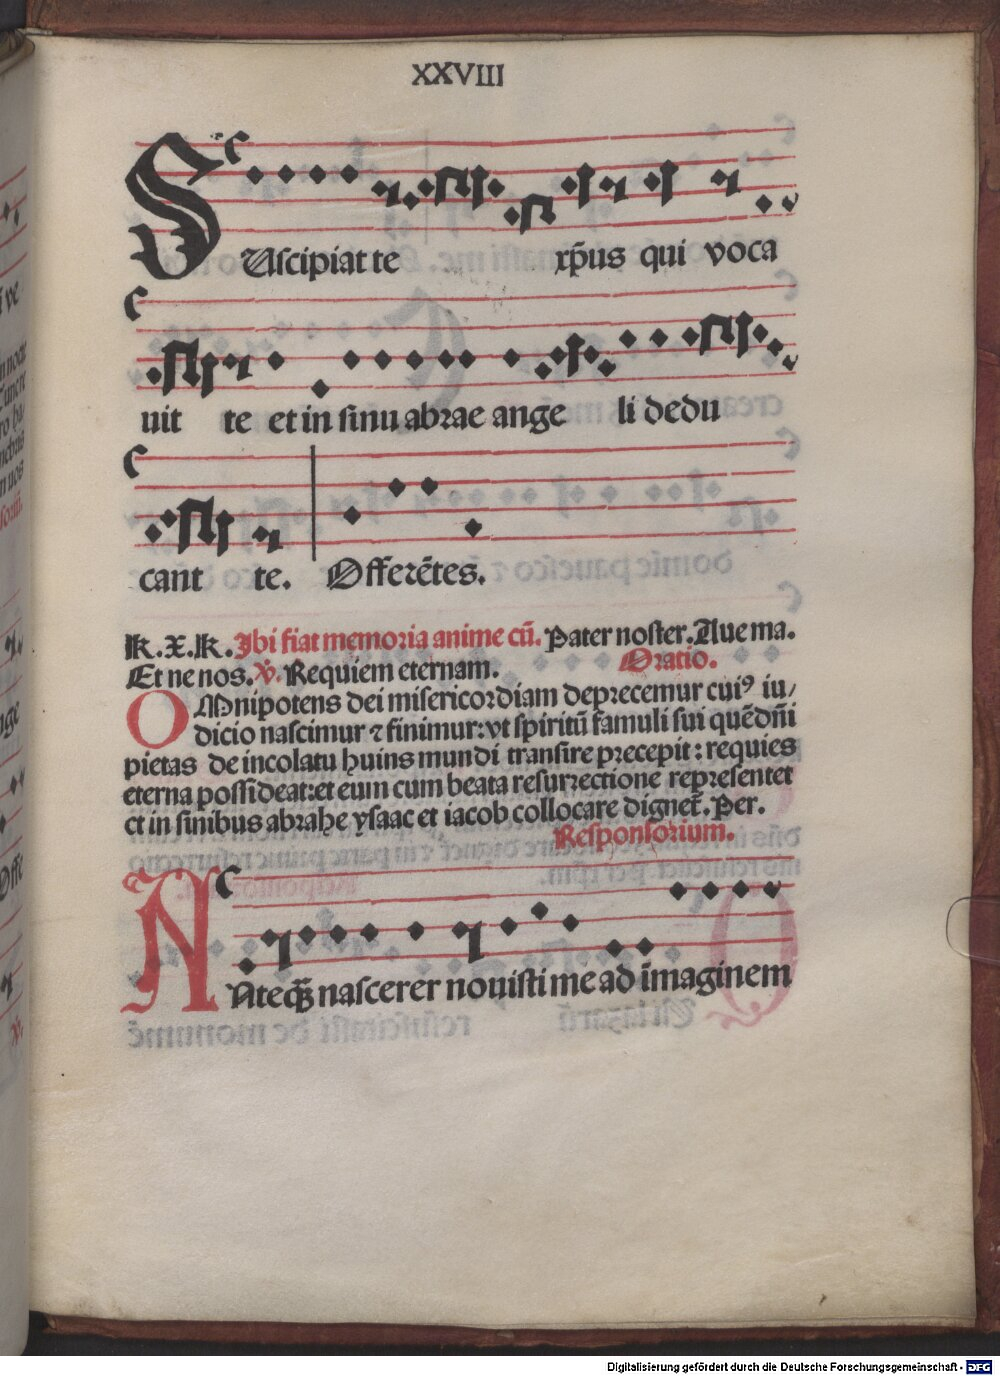 XXVIII
SUscipiat te xp̄us qui voca
uit te et in sinu abrae ange li dedu
cant te. Offerētes.
K. X. K. Ibi fiat memoria anime cū. Pater noster. Aue ma.
Et ne nos. V̊. Requiem eternam. Oratio.
OMnipotens dei misericordiam deprecemur cuiꝰ iu/
dicio nascimur ⁊ finimur: vt spiritū famuli sui quē dn̄i
pietas de incolatu huius mundi transire precepit: requies
eterna possideat: et eum cum beata resurrectione representet
et in sinibus abrahe ysaac et iacob collocare dignet̄. Per.
Responsorium.
ANteqꝫ nascerer nouisti me ad imaginem
Digitalisierung gefördert durch die Deutsche Forschungsgemeinschaft - DFG